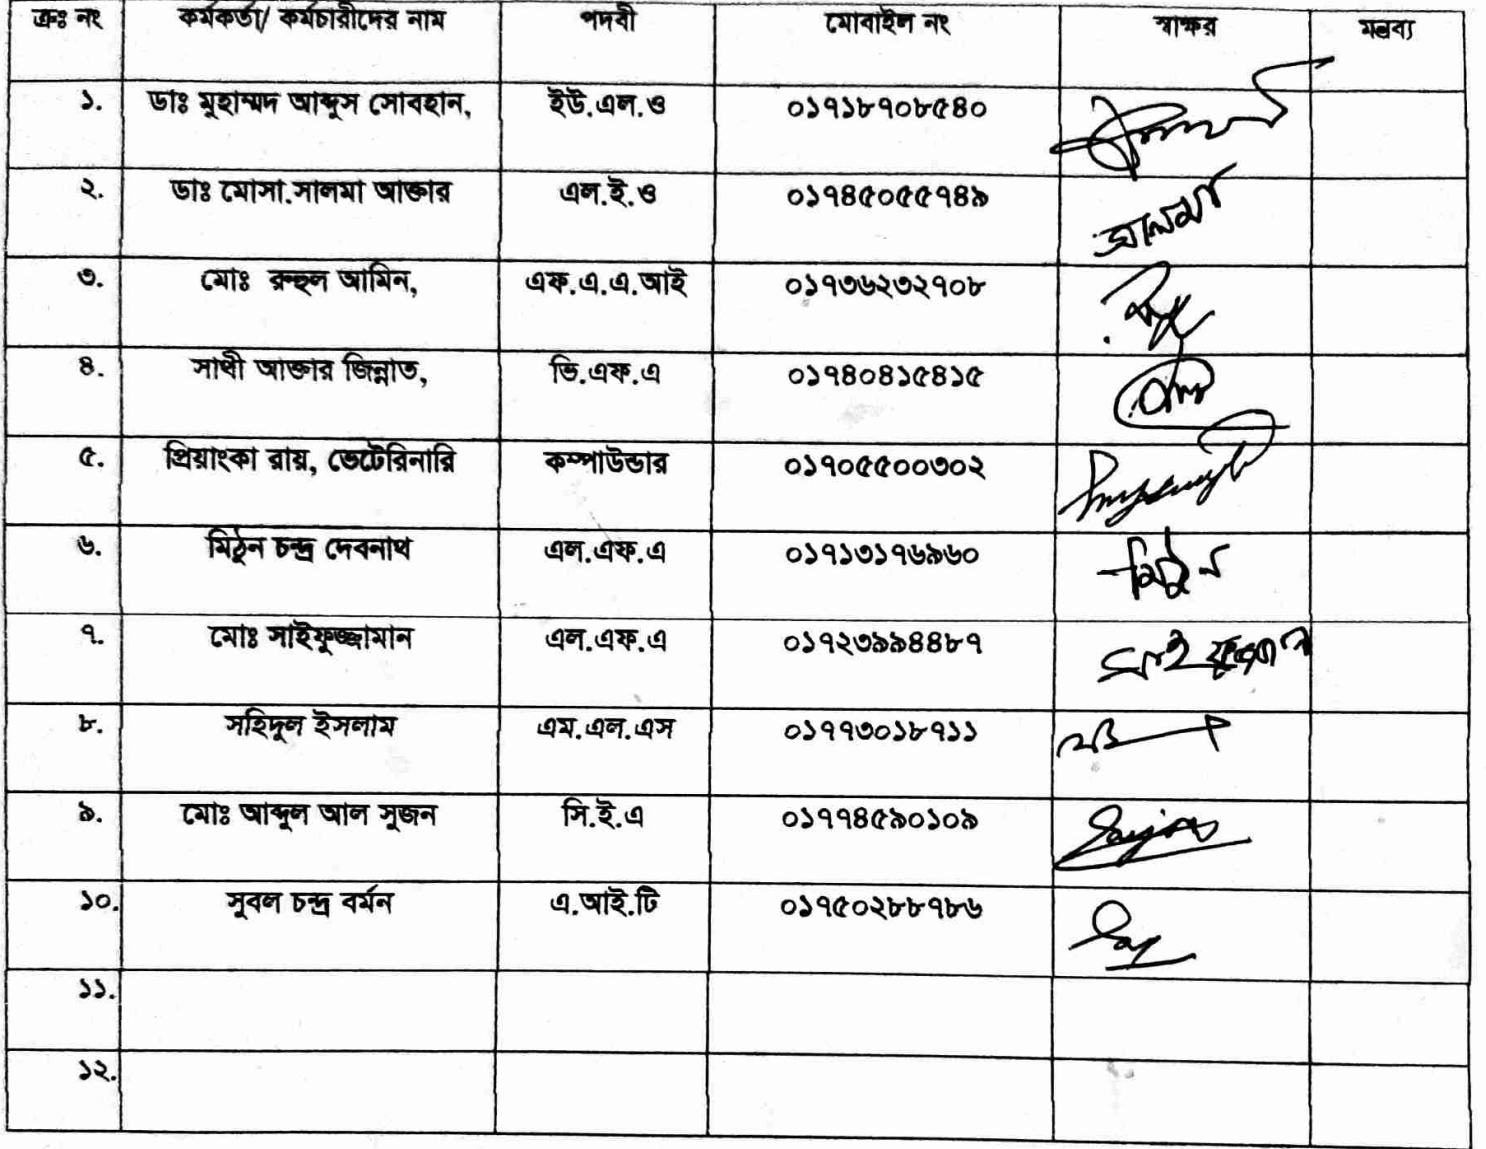 ক্রঃ নং কর্মকর্তা/ কর্মচারীদের নাম পদবী মোবাইল নং স্বাক্ষর মন্তব্য
১. ডাঃ মুহাম্মদ আব্দুস সোবহান, ইউ.এল.ও ০১৭১৮৭০৮৫৪০
২. ডাঃ মোসা.সালমা আক্তার এল.ই.ও ০১৭৪৫০৫৫৭৪৯ সালমা
৩. মোঃ রুহুল আমিন, এফ.এ.এ.আই ০১৭৩৬২৩২৭০৮
৪. সাথী আক্তার জিন্নাত, ভি.এফ.এ ০১৭৪০৪১৫৪১৫
৫. প্রিয়াংকা রায়, ভেটেরিনারি কম্পাউন্ডার ০১৭০৫৫০০৩০২
৬. মিঠুন চন্দ্র দেবনাথ এল.এফ.এ ০১৭১৩১৭৬৯৬০ মিঠুন
৭. মোঃ সাইফুজ্জামান এল.এফ.এ ০১৭২৩৯৯৪৪৮৭
৮. সহিদুল ইসলাম এম.এল.এস ০১৭৭৩০১৮৭১১
৯. মোঃ আব্দুল আল সুজন সি.ই.এ ০১৭৭৪৫৯০১০৯
১০. সুবল চন্দ্র বর্মন এ.আই.টি ০১৭৫০২৮৮৭৮৬
১১.
১২.